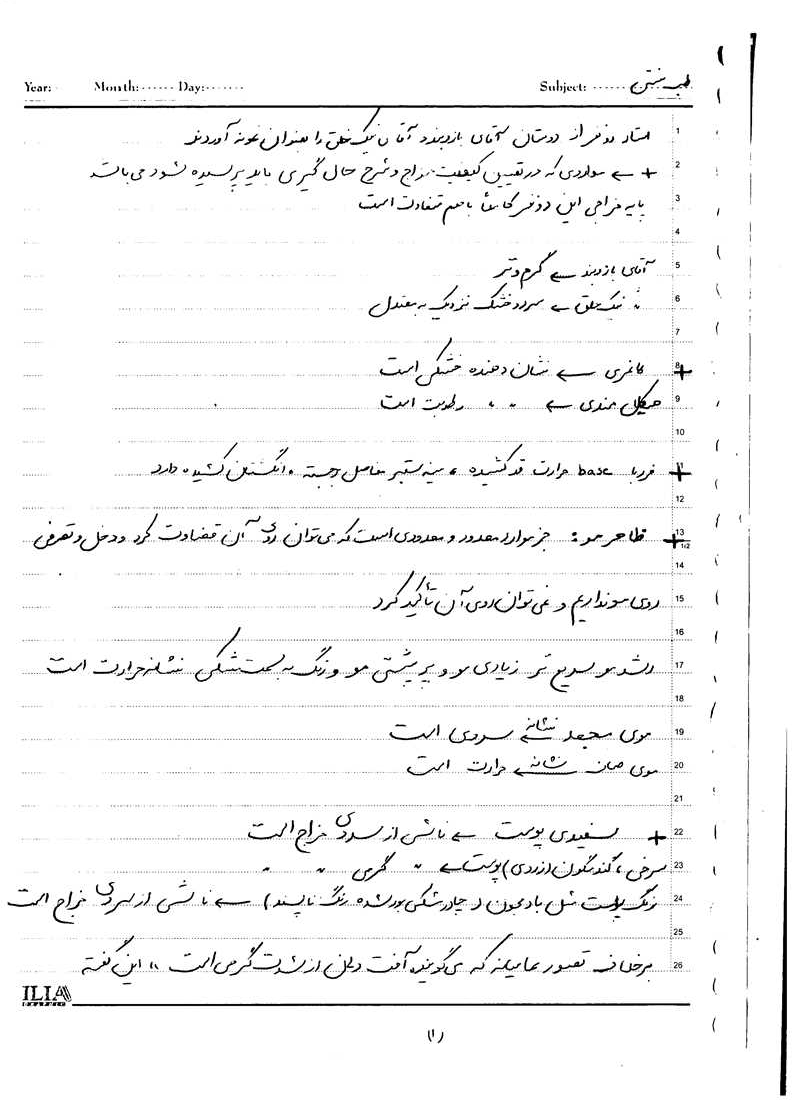 Year: Month:...... Day:....... Subject: ...... طب سنتی
1 استاد دو نفر از دوستان آقای بازدید و آقای نیک خلق را بعنوان نمونه آوردند
2 + ← مواردی که در تعیین کیفیت مزاج و شرح حال گیری باید پرسیده شود می باشد
3 پایه مزاجی این دو نفر کاملاً با هم متفاوت است
4
5 آقای ← گرم و تر
6 " نیک خلق ← سرد و خشک نزدیک به معتدل
7
8 + لاغری ← نشان دهنده خشکی است
9 هیکل مندی ← " " رطوبت است
10
11 + فرد با base حرارت قد کشیده ، سینه ستبر مفاصل برجسته ، انگشتان کشیده دارد
12
13 + ظاهر مو : جز موارد معدود و معدودی است که می توان روی آن قضاوت کرد و دخل و تصرفی
1/2
14
15 روی مو نداریم و نمی توان روی آن تأکید کرد
16
17 رشد مو سریع تر زیادی مو و پر پشتی مو و رنگ به سمت مشکی نشانه حرارت است
18
19 موی مجعد نشانه سردی است
20 موی صاف نشانه حرارت است
21
22 + سفیدی پوست ← ناشی از سردی مزاج است
23 سرخی ، گندمگون (زردی) پوست ← " گرمی " "
24 رنگ پوست مثل بادمجون ( چادر مشکی بور شده رنگ ناپسند ) ← ناشی از سردی مزاج است
25
26 برخلاف تصور عامیانه که می گویند آفت دهان از شدت گرمی است " این گفته
ILIA
(۱)